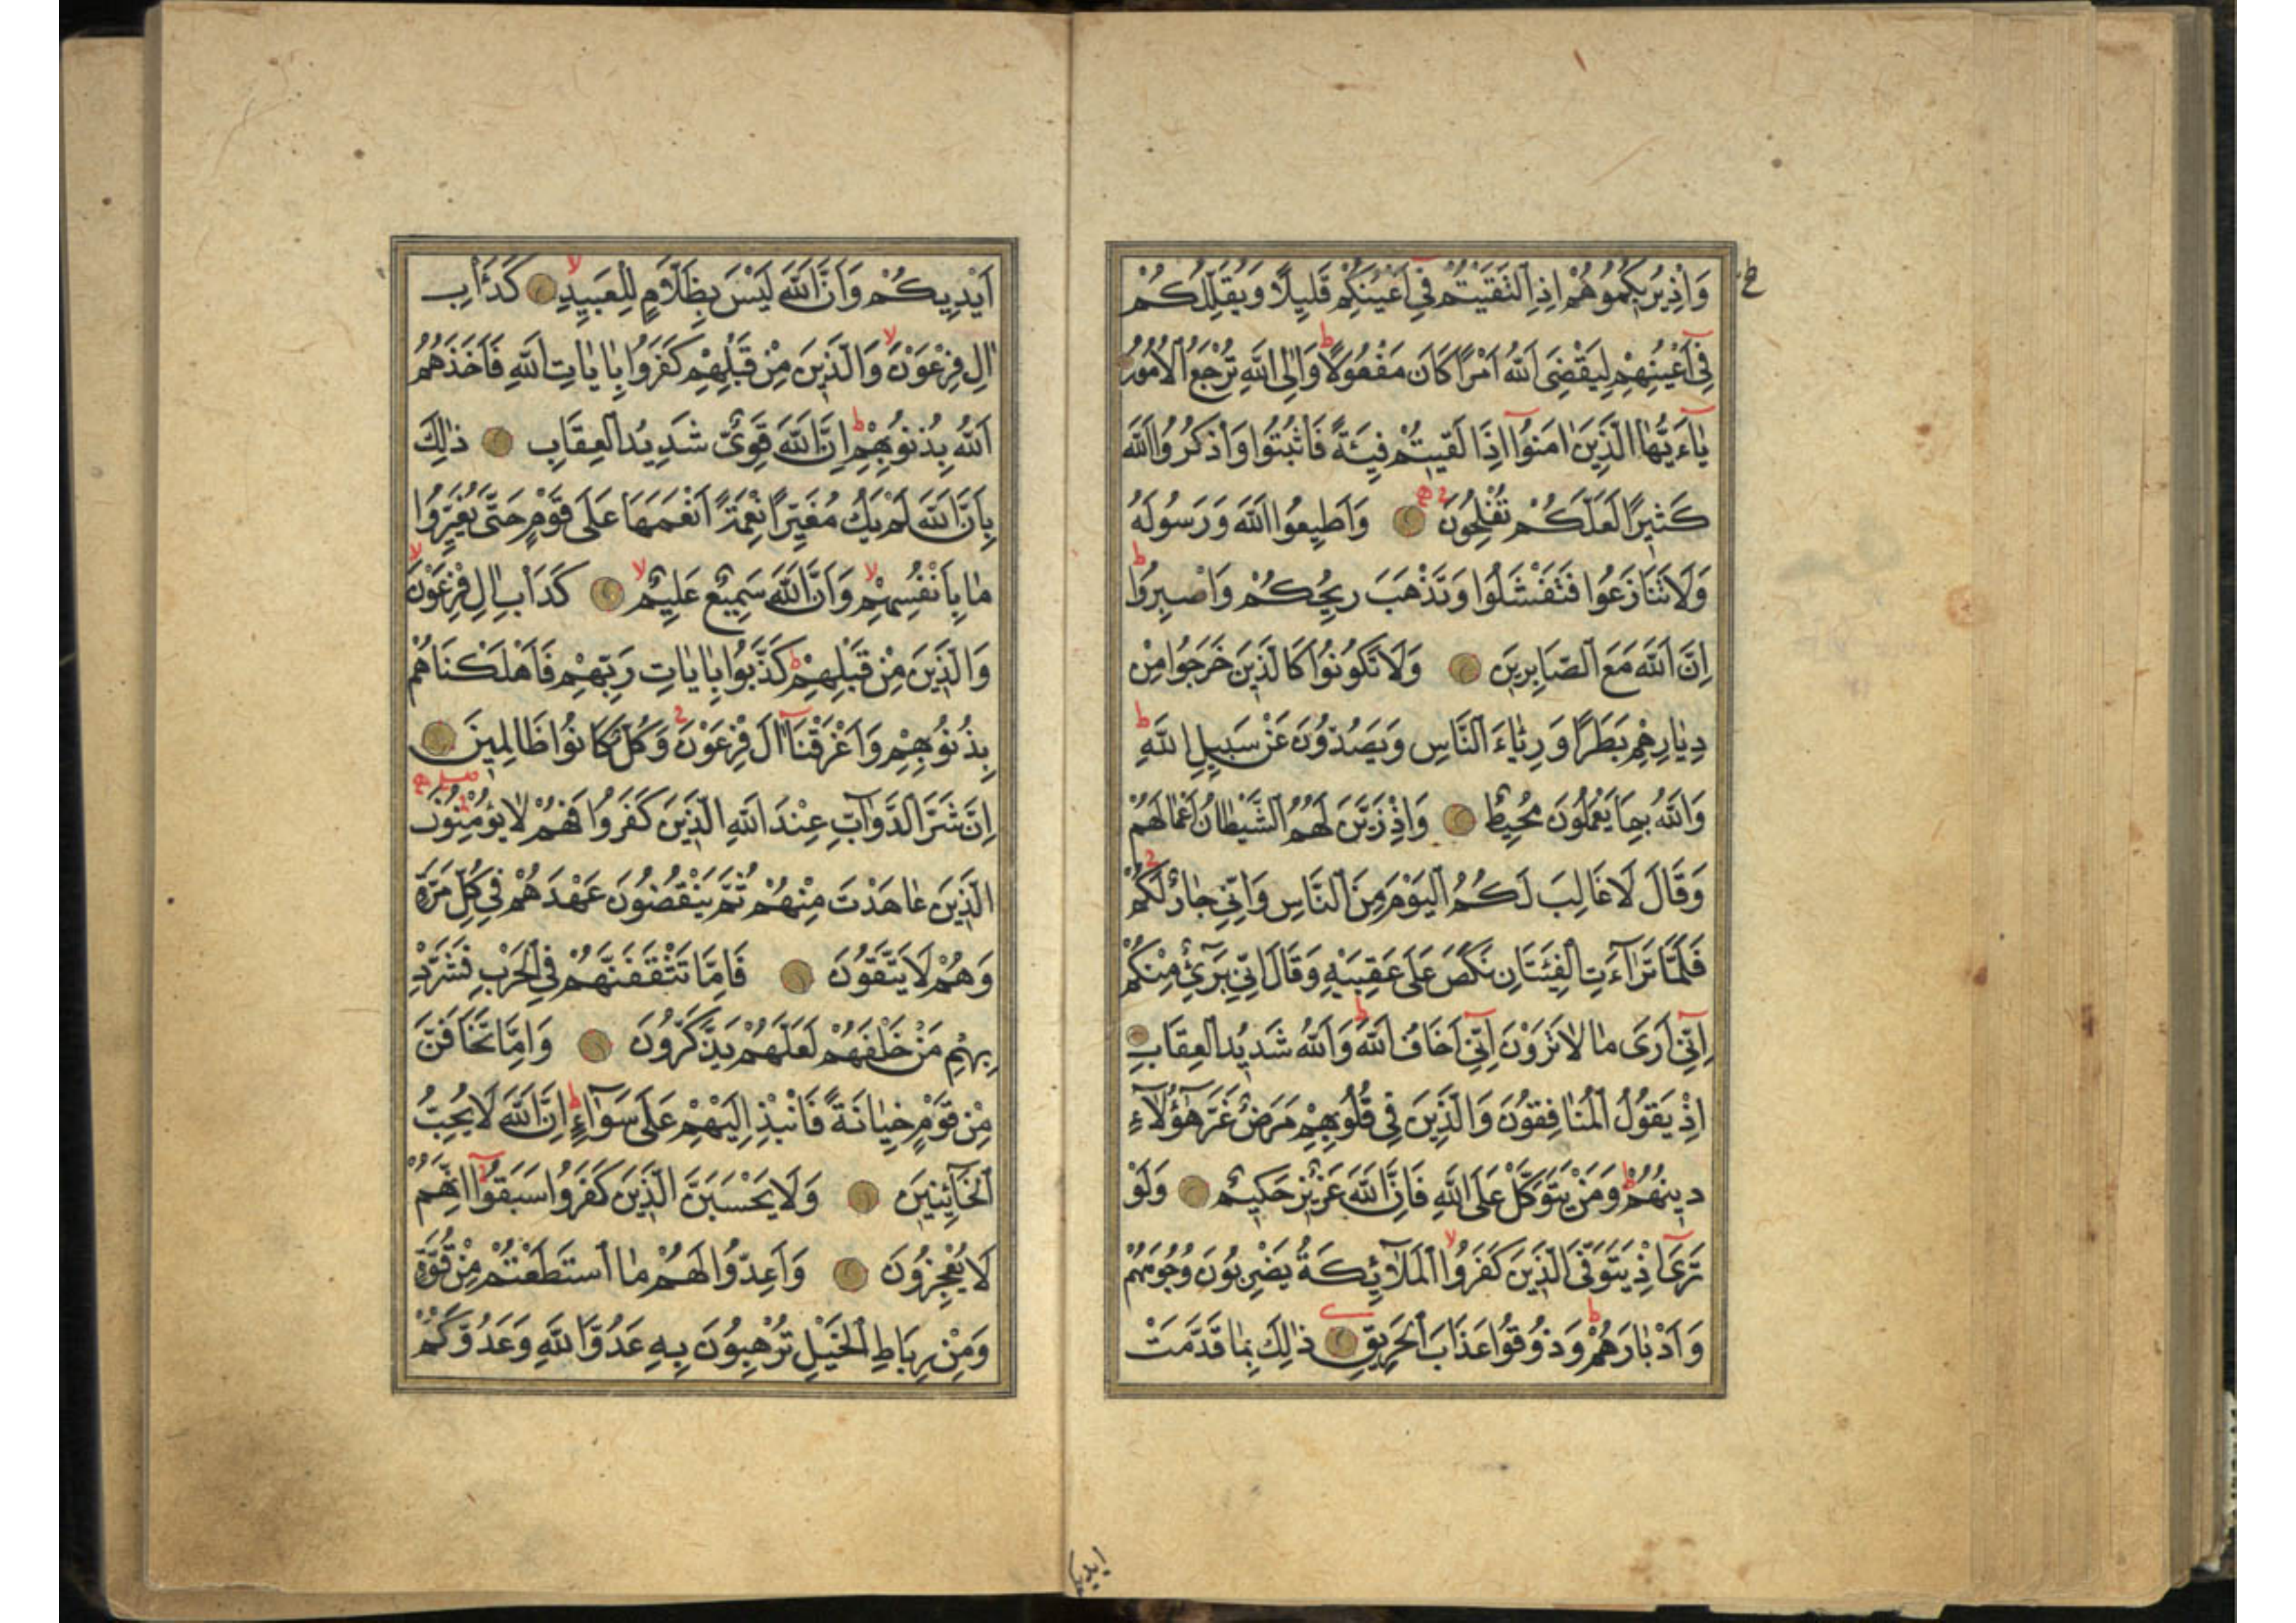 وَاِذْ يُرِيكُمُوهُمْ اِذِ الْتَقَيْتُمْ فِي اَعْيُنِكُمْ قَلِيلًا وَيُقَلِّلُكُمْ
فِي اَعْيُنِهِمْ لِيَقْضِيَ اللّٰهُ اَمْرًا كَانَ مَفْعُولًا وَاِلَى اللّٰهِ تُرْجَعُ الْاُمُورُ
يَاءَيُّهَا الَّذِينَ اٰمَنُوا اِذَا لَقِيتُمْ فِئَةً فَاثْبُتُوا وَاذْكُرُوا اللّٰهَ
كَثِيرًا لَعَلَّكُمْ تُفْلِحُونَ وَاَطِيعُوا اللّٰهَ وَرَسُولَهُ
وَلَا تَنَازَعُوا فَتَفْشَلُوا وَتَذْهَبَ رِيحُكُمْ وَاصْبِرُوا
اِنَّ اللّٰهَ مَعَ الصَّابِرِينَ وَلَا تَكُونُوا كَالَّذِينَ خَرَجُوا مِنْ
دِيَارِهِمْ بَطَرًا وَرِئَاءَ النَّاسِ وَيَصُدُّونَ عَنْ سَبِيلِ اللّٰهِ
وَاللّٰهُ بِمَا يَعْمَلُونَ مُحِيطٌ وَاِذْ زَيَّنَ لَهُمُ الشَّيْطَانُ اَعْمَالَهُمْ
وَقَالَ لَا غَالِبَ لَكُمُ الْيَوْمَ مِنَ النَّاسِ وَاِنِّي جَارٌ لَكُمْ
فَلَمَّا تَرَاءَتِ الْفِئَتَانِ نَكَصَ عَلَى عَقِبَيْهِ وَقَالَ اِنِّي بَرِيءٌ مِنْكُمْ
اِنِّي اَرَى مَا لَا تَرَوْنَ اِنِّي اَخَافُ اللّٰهَ وَاللّٰهُ شَدِيدُ الْعِقَابِ
اِذْ يَقُولُ الْمُنَافِقُونَ وَالَّذِينَ فِي قُلُوبِهِمْ مَرَضٌ غَرَّ هٰؤُلَاءِ
دِينُهُمْ وَمَنْ يَتَوَكَّلْ عَلَى اللّٰهِ فَاِنَّ اللّٰهَ عَزِيزٌ حَكِيمٌ وَلَوْ
تَرَى اِذْ يَتَوَفَّى الَّذِينَ كَفَرُوا الْمَلَائِكَةُ يَضْرِبُونَ وُجُوهَهُمْ
وَاَدْبَارَهُمْ وَذُوقُوا عَذَابَ الْحَرِيقِ ذٰلِكَ بِمَا قَدَّمَتْ
اَيْدِيكُمْ وَاَنَّ اللّٰهَ لَيْسَ بِظَلَّامٍ لِلْعَبِيدِ كَدَأْبِ
اٰلِ فِرْعَوْنَ وَالَّذِينَ مِنْ قَبْلِهِمْ كَفَرُوا بِاٰيَاتِ اللّٰهِ فَاَخَذَهُمُ
اللّٰهُ بِذُنُوبِهِمْ اِنَّ اللّٰهَ قَوِيٌّ شَدِيدُ الْعِقَابِ ذٰلِكَ
بِاَنَّ اللّٰهَ لَمْ يَكُ مُغَيِّرًا نِعْمَةً اَنْعَمَهَا عَلَى قَوْمٍ حَتَّى يُغَيِّرُوا
مَا بِاَنْفُسِهِمْ وَاَنَّ اللّٰهَ سَمِيعٌ عَلِيمٌ كَدَاْبِ اٰلِ فِرْعَوْنَ
وَالَّذِينَ مِنْ قَبْلِهِمْ كَذَّبُوا بِاٰيَاتِ رَبِّهِمْ فَاَهْلَكْنَاهُمْ
بِذُنُوبِهِمْ وَاَغْرَقْنَا اٰلَ فِرْعَوْنَ وَكُلٌّ كَانُوا ظَالِمِينَ
اِنَّ شَرَّ الدَّوَابِّ عِنْدَ اللّٰهِ الَّذِينَ كَفَرُوا فَهُمْ لَا يُؤْمِنُونَ
الَّذِينَ عَاهَدْتَ مِنْهُمْ ثُمَّ يَنْقُضُونَ عَهْدَهُمْ فِي كُلِّ مَرَّةٍ
وَهُمْ لَا يَتَّقُونَ فَاِمَّا تَثْقَفَنَّهُمْ فِي الْحَرْبِ فَشَرِّدْ
بِهِمْ مَنْ خَلْفَهُمْ لَعَلَّهُمْ يَذَّكَّرُونَ وَاِمَّا تَخَافَنَّ
مِنْ قَوْمٍ خِيَانَةً فَانْبِذْ اِلَيْهِمْ عَلَى سَوَاءٍ اِنَّ اللّٰهَ لَا يُحِبُّ
الْخَائِنِينَ وَلَا يَحْسَبَنَّ الَّذِينَ كَفَرُوا سَبَقُوا اِنَّهُمْ
لَا يُعْجِزُونَ وَاَعِدُّوا لَهُمْ مَا اسْتَطَعْتُمْ مِنْ قُوَّةٍ
وَمِنْ رِبَاطِ الْخَيْلِ تُرْهِبُونَ بِهِ عَدُوَّ اللّٰهِ وَعَدُوَّكُمْ